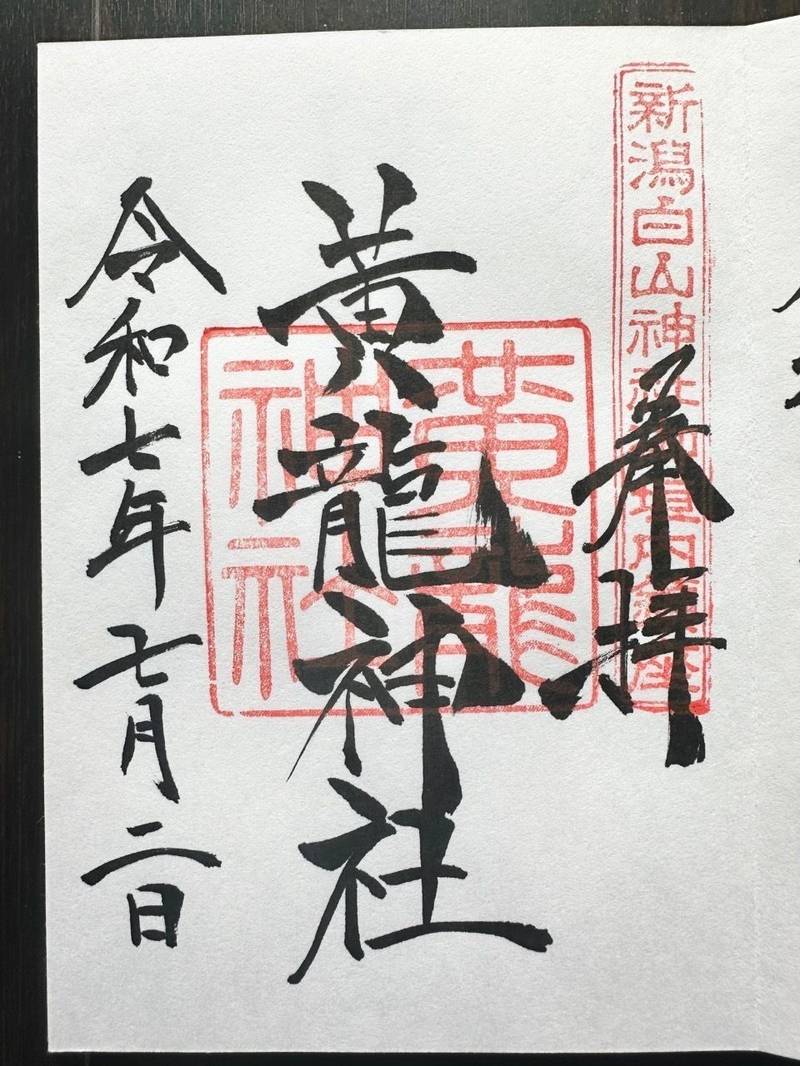 新潟白山神社御境内鎮座
奉拝
黄龍神社
黄龍神社
令和七年七月二日